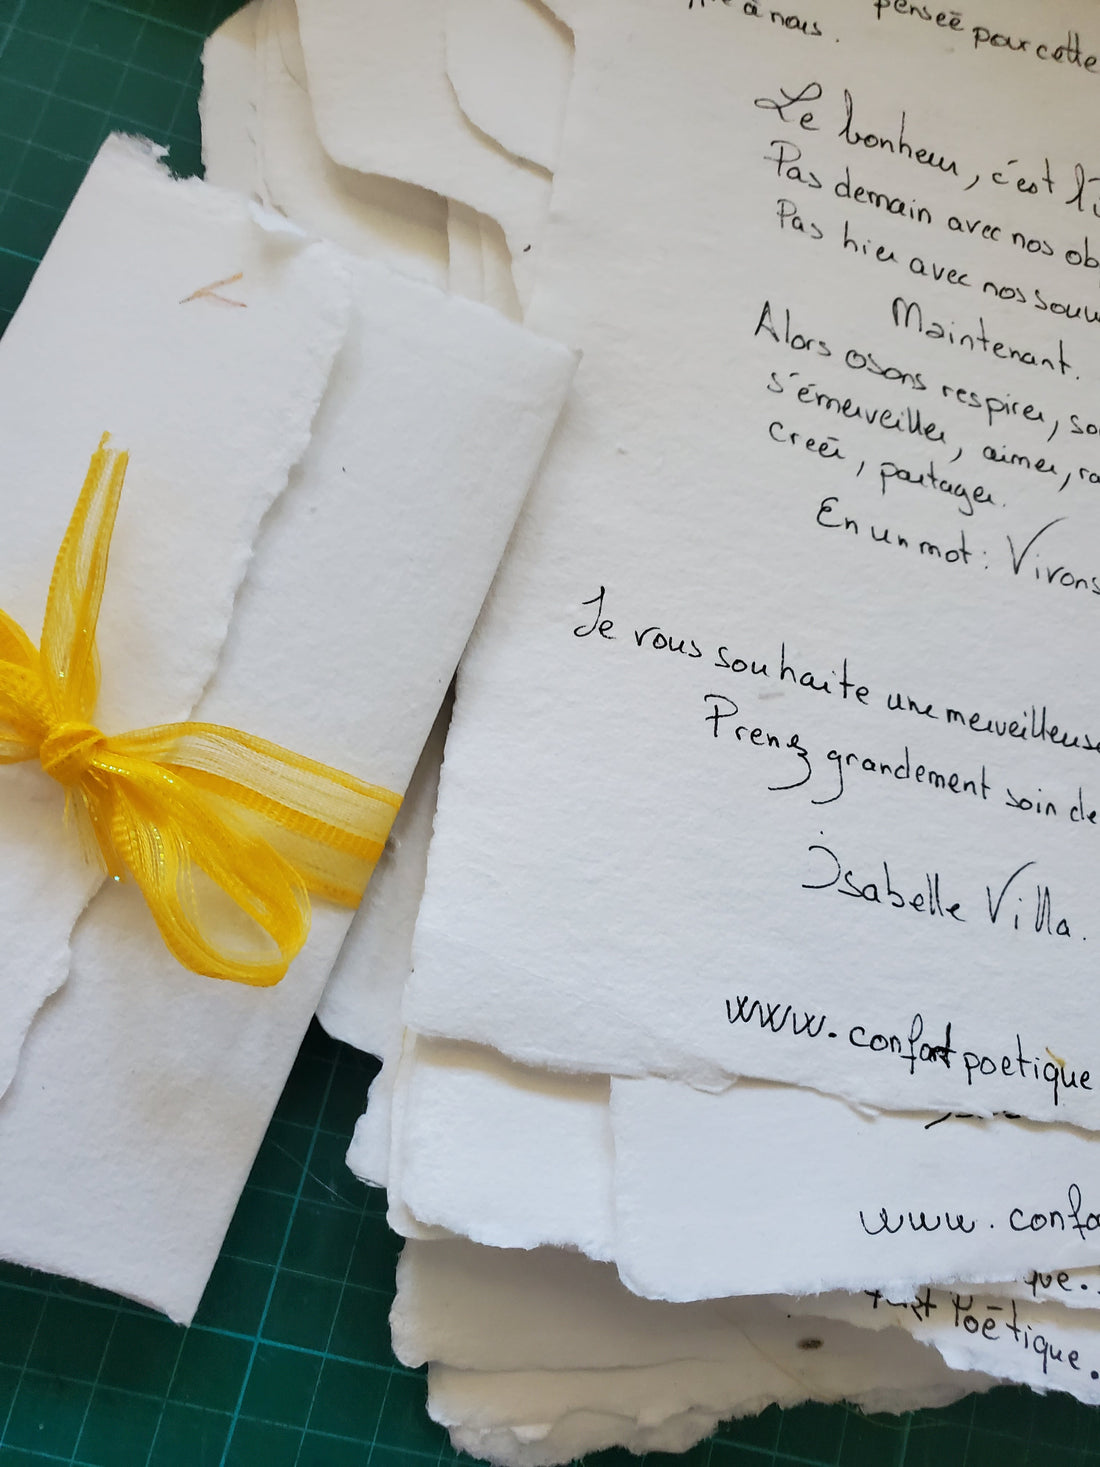 à nous.
pensée pour cette
Le bonheur, c'est
Pas demain avec nos
Pas hier avec nos
Maintenant.
Alors osons respirer,
s'émerveiller, aimer,
créer, partager.
En un mot : Vivons
Je vous souhaite une merveilleuse
Prenez grandement soin de
Isabelle Villa.
www.confortpoetique
www.confo
que.
Poëtique.